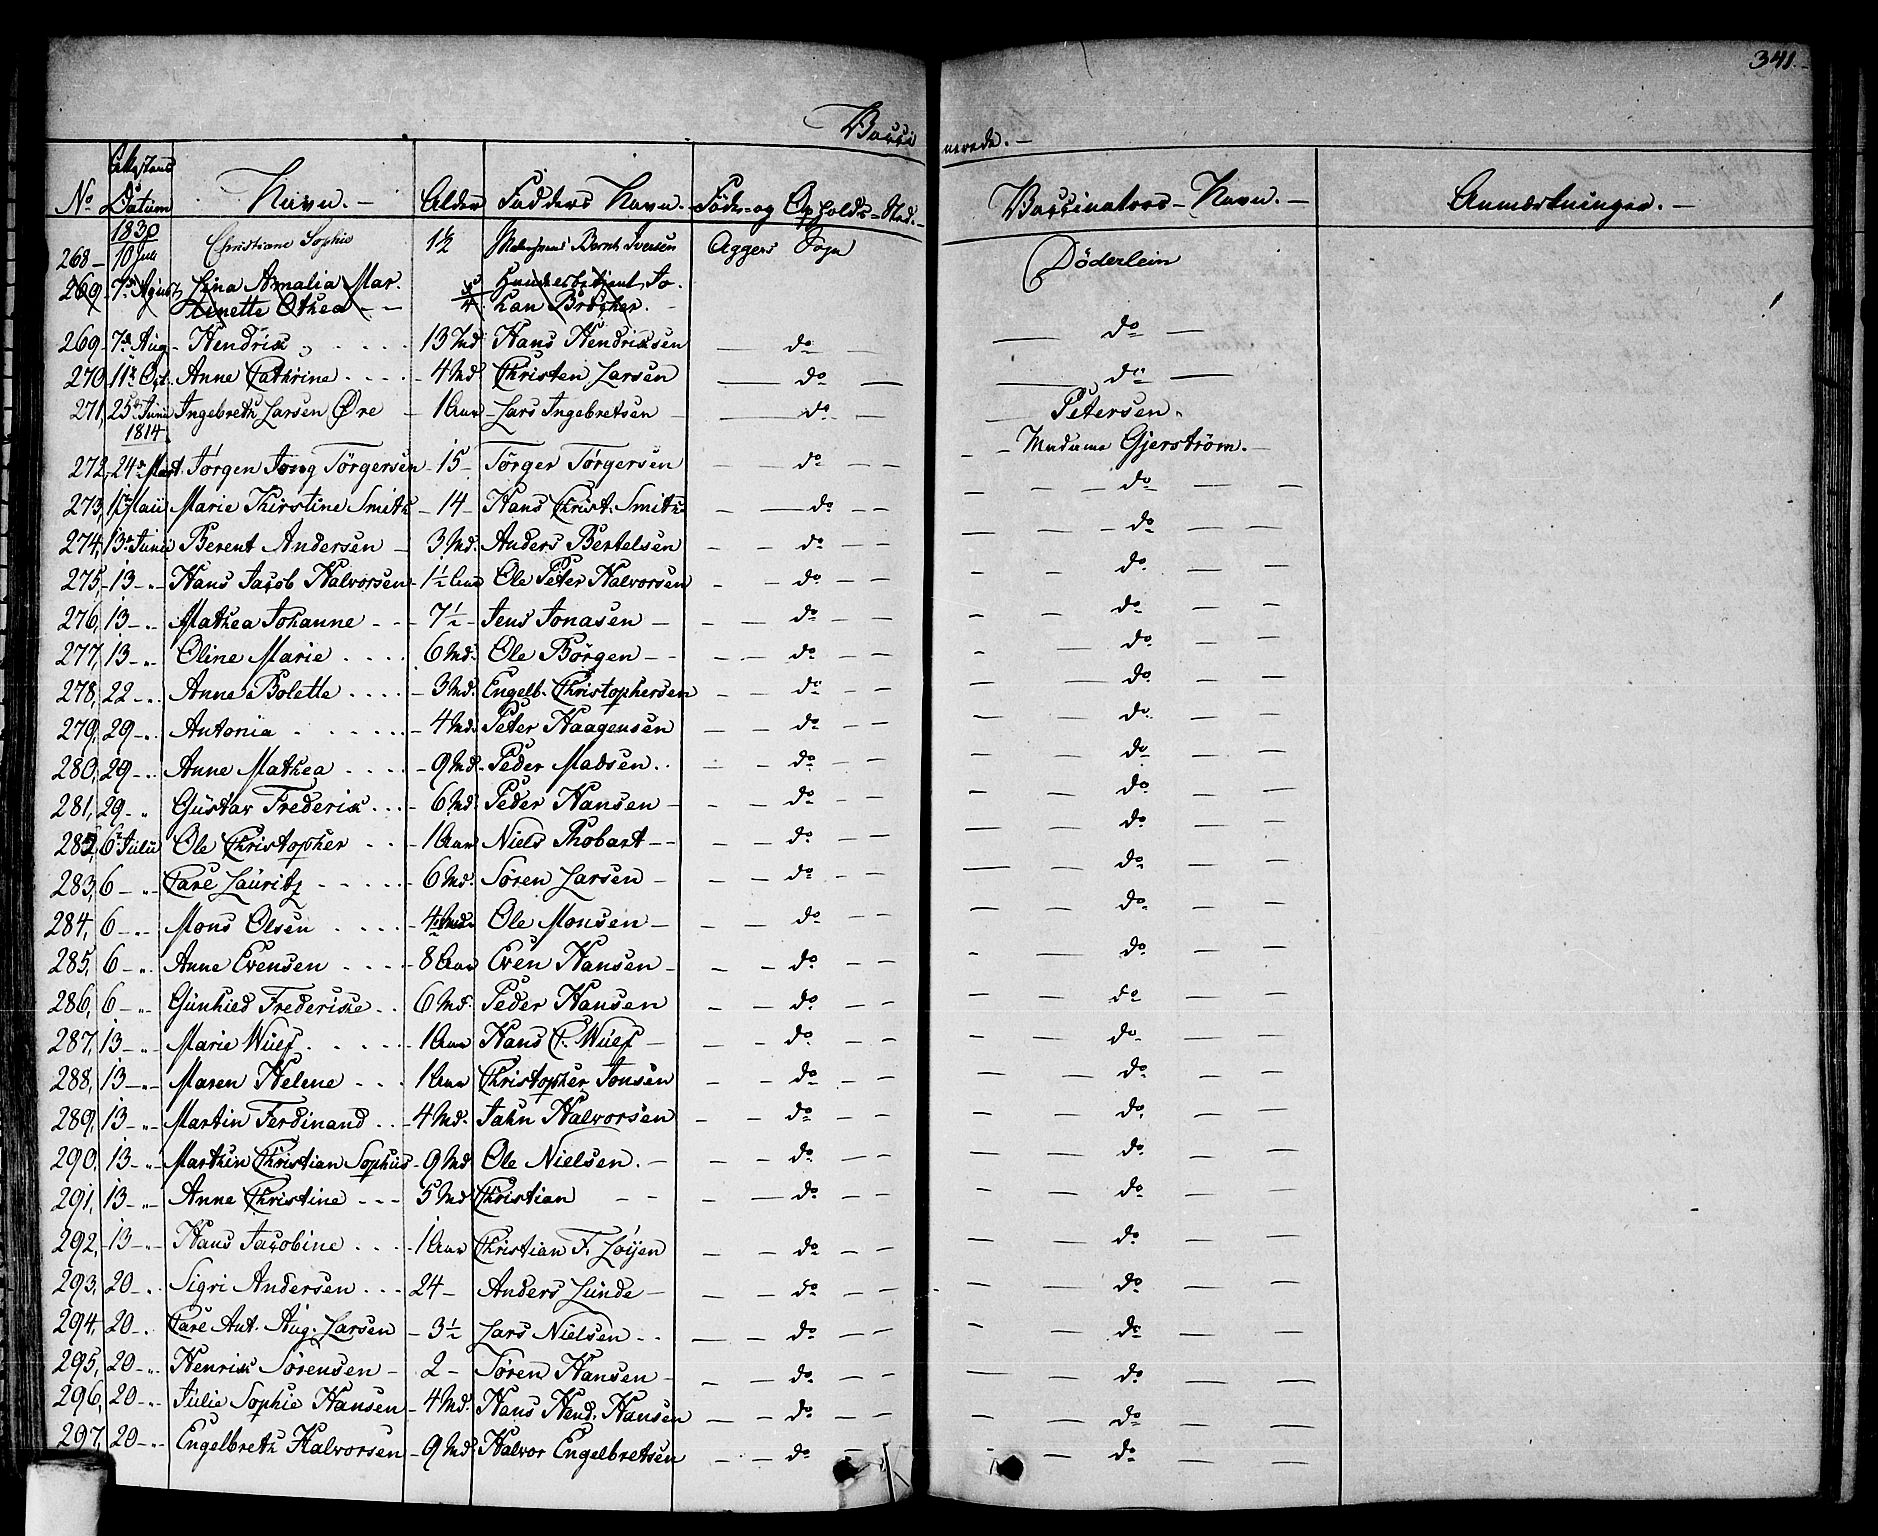 341.
Vacci nerede. -
No Attestens Datum Navn. - Alder Fadders Navn. - Føde- og Opholds-Sted. - Vaccinators-Navn. - Anmærkninger. -
1830
268 - 10 Juli Christiane Sophie 1½ Bernt Iversen Aggers Sogn Döderlein
269 7de August Lina Amalia Mar. 5/4 Jo-
Linette Othea - - han Bröcher.
269 - 7de Aug - Hendrik 13 Md Hans Hendriksen - do - do -
270 11te Oct. Anne Cathrine . . . - 4 Md Christen Larsen - do - - do -
271, 25de Junii Ingebreth Larsen Øre - 1 Aar - Lars Ingebretsen - - do - Petersen.
1814.
272, 24de Mart. Jörgen Jong Törgersen - 15 - Törger Törgersen - - do - - Madame Gjerström. -
273, 1te Maii Marie Kirstine Smith - 14 - Hans Christ. Smith - - do - - - - - do - -
274, 13de Junii Berent Andersen - 3 Md. Anders Bertelsen - - do - - - - - do - - -
275, - 13 - „ - Hans Jacob Halvorsen - 1½ Aar Ole Peter Halvorsen - - do - - - - do - -
276, 13 - „ - Mathea Johanne - - - 7½ - Jens Jonasen - - - do - - - - do - -
277, 13 - „ Oline Marie . . . . 6 Md. Ole Börgen - - - - do - - - - do - -
278, 22 - „ Anne Bolette . . . . - 3 Md. Engelb. Christophersen - - do - - - - do - -
279, 29 - „ Antonia . . . . . - 4 Md. Peter Haagensen - - do - - - - do - -
280, 29 - „ Anne Mathea . . . . - 9 Md - Peder Madsen . . - - do - - - - do - -
281, 29 - „ Gustav Frederik . . . - 6 Md. Peder Hansen - - - do - - - - do - -
282, 6te Julii Ole Christopher . . . - 1 Aar Niels Thobart - - - - do - - - - do - -
283, 6 - „ - Care Lauritz . . . . - 6 Md. Sören Larsen - - - do - - - - do - -
284, 6 - „ - Mons Olsen . . . . - 4 Md. Ole Monsen - - - do - - - - do - -
285, 6 - „ Anne Evensen . . . . - 8 Aar Even Hansen - - - do - - - - do - -
286, 6 - „ Gunhild Frederikke . . 6 Md. Peder Hansen - - do - - - - do - -
287, 13 - „ Marie Wulf . . . . . - 1 Aar Hans C. Wulf - - - do - - - - do - -
288, 13 - „ Maren Helene . . . 1 Aar Christopher Jonsen - - do - - - - do - -
289, 13 - „ Martin Ferdinand . . - 4 Md. Jahn Halvorsen - - do - - - - do - -
290, 13 - „ Marthin Christian Sophus - 9 Md Ole Nielsen. - - - do - - - - do - -
291, 13 - „ Anne Christine - - - 5 Md Christian - - - - do - - - - do - -
292, - 13 - „ Hans Jacobine . . . . 1 Aar Christian F. Löyen - - do - - - - do - -
293, 20 - „ Sigri Andersen . . . 24 - Anders Lunde - - - do - - - - do - -
294, 20 - „ Care Ant. Aug. Larsen - 3½ Lars Nielsen . . - - do - - - - do - -
295, 20 - „ Henrik Sörensen - 2 - Sören Hansen - - - do - - - - do - -
296, 20 - „ Julie Sophie Hansen - 4 Md. Hans Hend. Hansen - - do - - - - do - -
297, 20 - „ Engelbreth Halvorsen - 9 Md. Halvor Engelbretsen - - do - - - do - -